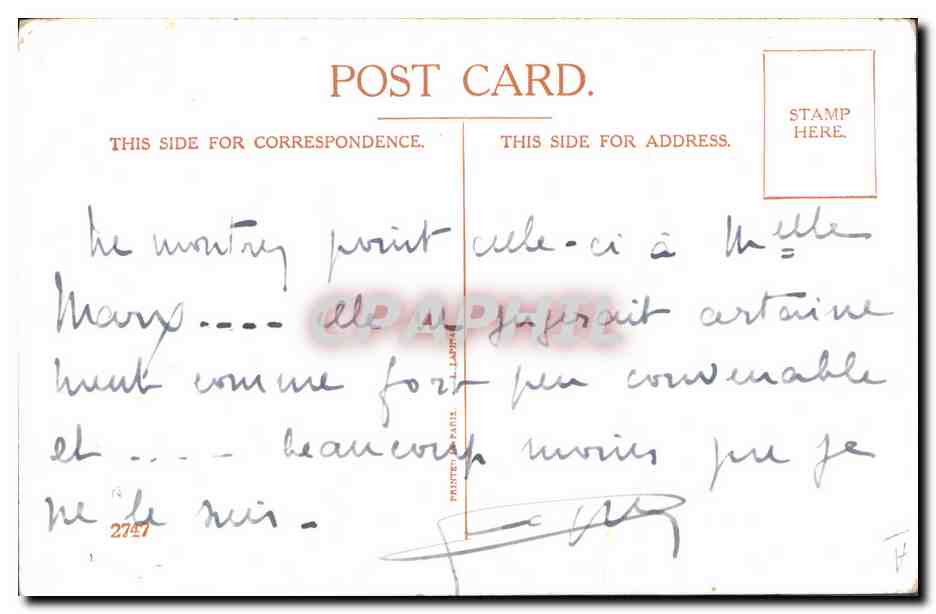 POST CARD.
THIS SIDE FOR CORRESPONDENCE.
THIS SIDE FOR ADDRESS.
STAMP
HERE.
Ne montrez point celle-ci à Melle
Marx .... elle me jugerait certaine
ment comme fort peu convenable
et .... beaucoup moins que je
ne le suis -
2747
PRINTED IN PARIS.
CPAPHIL
H